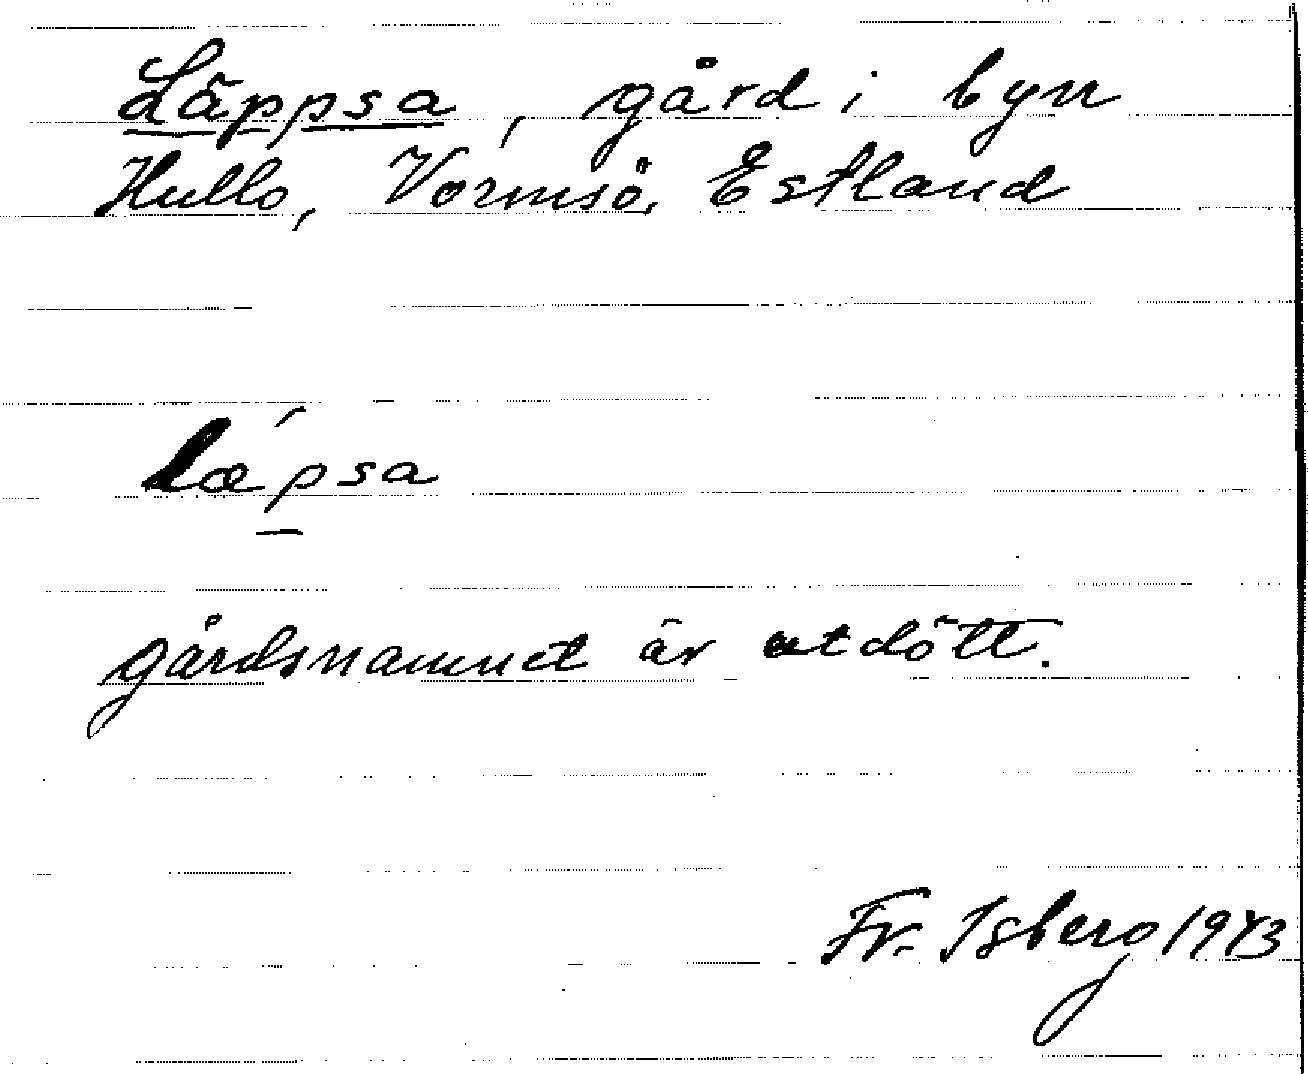 Läppsa, gård i byn
Hullo, Vormsö, Estland
læ´p̲sa
gårdsnamnet är utdött.
Fr. Isberg 1943